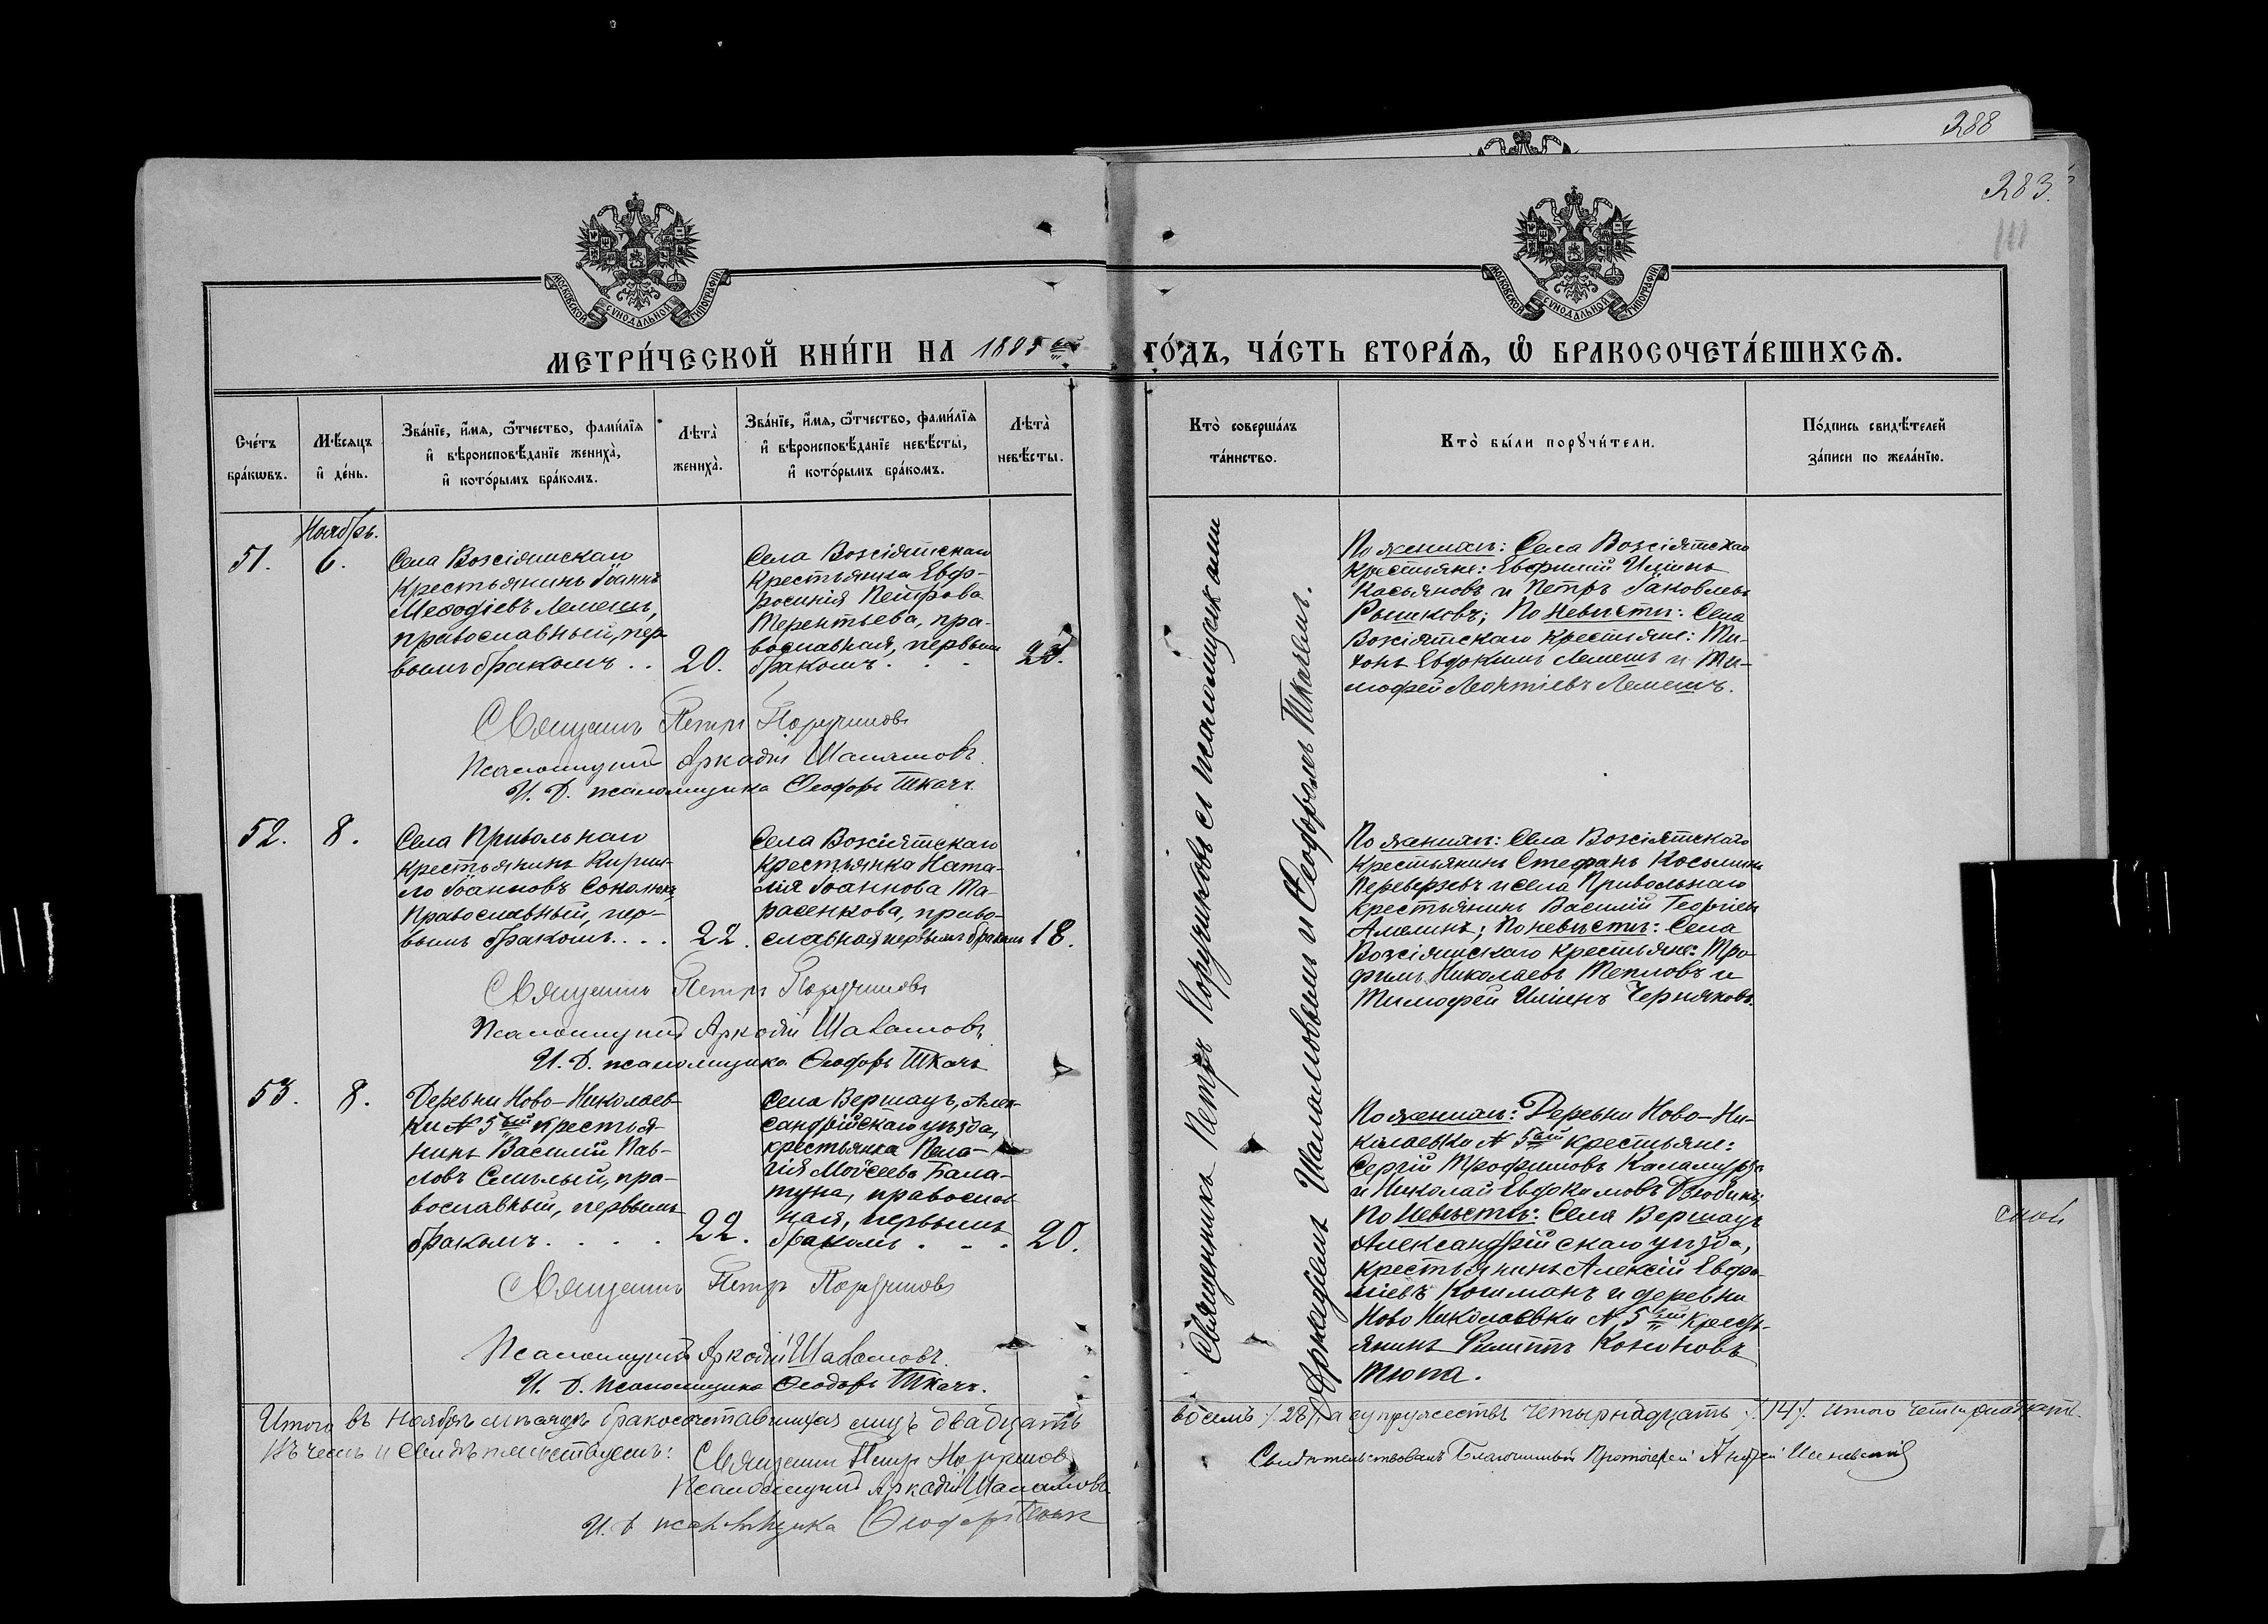 288
283.
МОСКОВСКОЙ СѴНОДАЛЬНОЙ ТИПОГРАФІИ
МОСКОВСКОЙ СѴНОДАЛЬНОЙ ТИПОГРАФІИ
МЕТРИ́ЧЕСКОЙ КНИ́ГИ НА 1885 ый ГО́ДЪ, ЧА́СТЬ ВТОРА́Ѧ, Ѽ БРАКОСОЧЕТА́ВШИХСѦ.
Сче́тъ
бра́кѡвъ.
Мѣ́сѧцъ
и҆ де́нь.
Зва́нїе, и҆́мѧ, ѻ҆́тчество, фами́лїѧ
и҆ вѣроисповѣ́данїе жениха̀,
и҆ кото́рымъ бра́комъ.
Лѣта̀
жениха̀.
Зва́нїе, и҆́мѧ, ѻ҆́тчество, фами́лїѧ
и҆ вѣроисповѣ́данїе невѣ́сты,
и҆ кото́рымъ бра́комъ.
Лѣта̀
невѣ́сты.
Кто̀ соверша́лъ
та́инство.
Кто̀ бы́ли порꙋчи́тели.
По́дпись свидѣ́телей
за́писи по жела́нїю.
Ноябрь.
51.
6.
Села Возсіятскаго
крестьянинъ Іоаннъ
Меѳодіевъ Лемешъ,
православный, пер-
вымъ бракомъ . .
20.
Села Возсіятскаго
крестьянка Евф-
росинія Петрова
Терентьева, пра-
вославная, первымъ
бракомъ . . .
По женихѣ: Села Возсіятскаго
крестьяне: Евфимій Иліинъ
Касьяновъ и Петръ Іаковлевъ
Рышковъ; По невѣстѣ: Села
Возсіятскаго крестьяне: Ти-
хонъ Евдокимъ Лемешъ и Ти-
мофей Леонтіевъ Лемешъ.
Священникъ Петръ Поручиковъ
Псаломщикъ Аркадій Шаламовъ.
И. Д. псаломщика Ѳеодоръ Ткачъ.
52.
8.
Села Привольнаго
крестьянинъ Кирил-
ло Іоанновъ Соколюкъ,
православный, пер-
вымъ бракомъ . . .
22.
Села Возсіятскаго
крестьянка Ната-
лія Іоаннова Та-
расенкова, право-
славная первымъ бракомъ
18.
По женихѣ: Села Возсіятскаго
крестьянинъ Стефанъ Косьминъ
Переверзевъ и села Привольнаго
крестьянинъ Василій Георгіевъ
Амелинъ; По невѣстѣ: Села
Возсіятскаго крестьяне: Тро-
фимъ Николаевъ Тепловъ и
Тимофей Иліинъ Черняковъ.
Священникъ Петръ Поручиковъ
Псаломщикъ Аркадій Шаламовъ.
И. Д. псаломщика Ѳеодоръ Ткачъ
53.
8.
Деревни Ново-Николаев-
ки № 5 ый крестья-
нинъ Василій Пав-
ловъ Смѣлый, пра-
вославный, первымъ
бракомъ . . . .
22.
Села Вершацъ, Алек-
сандрійскаго уѣзда,
крестьянка Пела-
гія Моѵсеева Бала-
туна, православ-
ная, первымъ
бракомъ . . .
20.
По женихѣ: Деревни Ново-Ни-
колаевки № 5 ый крестьяне:
Сергій Трофимовъ Каламурза
и Николай Евдокимовъ Дзюбикъ;
По невѣстѣ: Села Вершацъ
Александрійскаго уѣзда,
крестьянинъ Алексій Евфи-
міевъ Кошманъ и деревни
Ново Николаевки № 5 ый кресть-
янинъ Филиппъ Кононовъ
Тюпа.
Священникъ Петръ Поручиковъ
Псаломщикъ Аркадій Шаламовъ.
И. Д. псаломщика Ѳеодоръ Ткачъ.
Священникъ Петръ Поручиковъ съ псаломщиками
Аркадіемъ Шаламовымъ и Ѳеодоромъ Ткачемъ.
Итого въ ноябрѣ мѣсяцѣ бракосочетавшихся лицъ двадцать восемь /28/ а супружествъ четырнадцать /14/. итого четырнадцать.
Въ чемъ и свидѣтельствуемъ: Священникъ Петръ Поручиковъ
Псаломщикъ Аркадій Шаламовъ
И. Д. псаломщика Ѳеодоръ Ткачъ
Свидѣтельствовалъ Благочинный Протоіерей Андрей